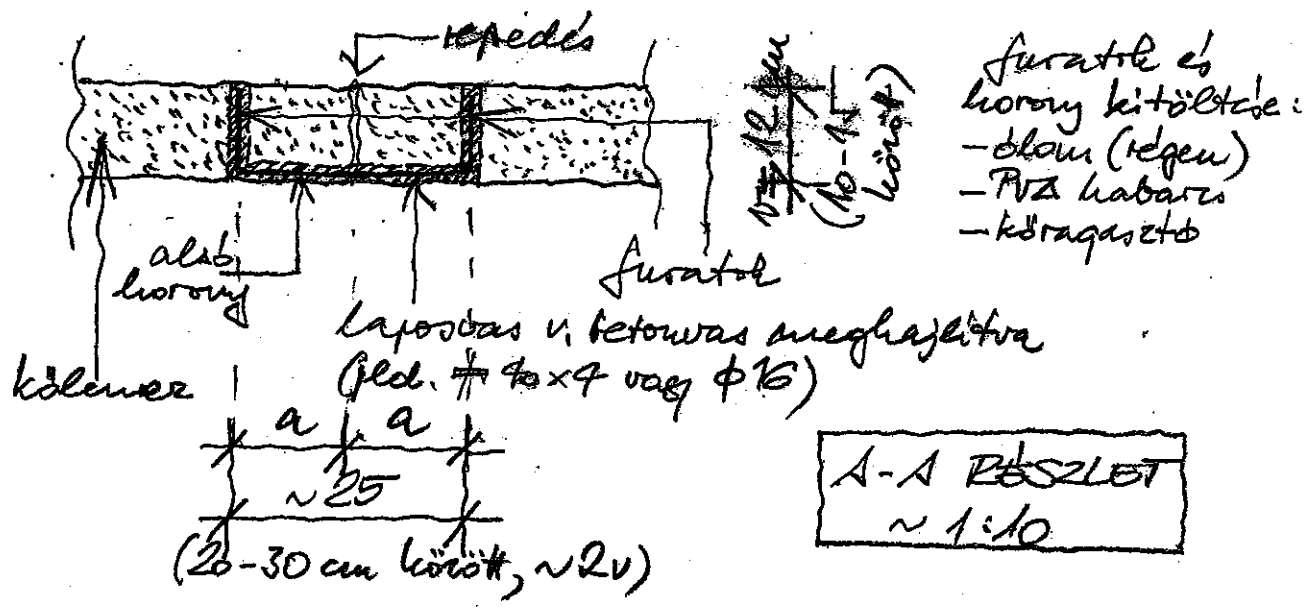 repedés
furatok és
horony kitöltése:
- ólom (régen)
- PVA habarcs
- kőragasztó
v=12 cm
között)
alsó
horony
furatok
laposvas v. betonvas meghajlítva
(pld. 40×4 vagy ϕ16)
kőlemez
a a
~25
(20-30 cm között, ~2v)
A-A RÉSZLET
~ 1:10